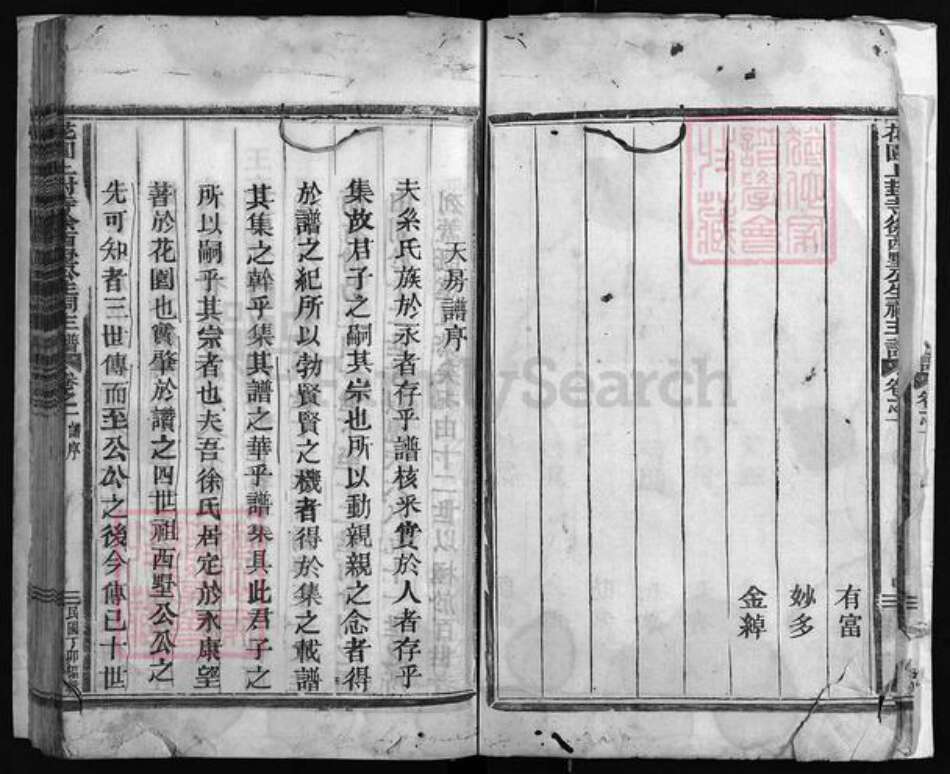 有富
妙多
金綽
大房譜序
夫系氏族於永者存乎譜核釆實於人者存乎
集故君子之嗣其崇也所以動親親之念者得
於譜之紀所以勃賢賢之機者得於集之載譜
其集之幹乎集其譜之華乎譜集具此君子之
所以嗣乎其崇者也夫吾徐氏居定於永康望
著於花園也實肇於讚之四世祖西墅公公之
先可知者三世傳而至公公之後今傳已十世
卷之一
譜序
民國丁卯
FamilySearch